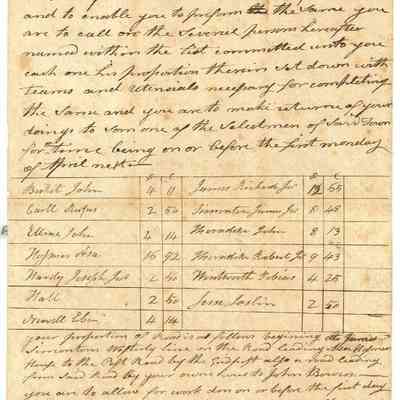 and to enable you to perform the the Same you
are to call on the Several persons hereafter
named within the List committed unto you
each one his proportion therein Set down with
teams and utensials necessary for completing
the Same and you are to make return of your
doings to Som one of the Selectmen of Said Town
for time being on or before the first monday
of April next
John 4 11 James Jur 13 55
Carll Rufus 2 50 James Jur 8 48
John 4 14 John 8 13
16 92 Robert Jur 9 43
Hardy Joseph Jur 2 50 Wentworth Tobias 4 25
Hall 2 50 Jesse 2 50
Newell Eben 4 14
your proportion of Road is as follows begining at James
Simontons Westerly line on the Road leading
House to the Post Road by the also a road leading
from Said Road by your own House to John Bowers
you are to allow for work don on or before the first day